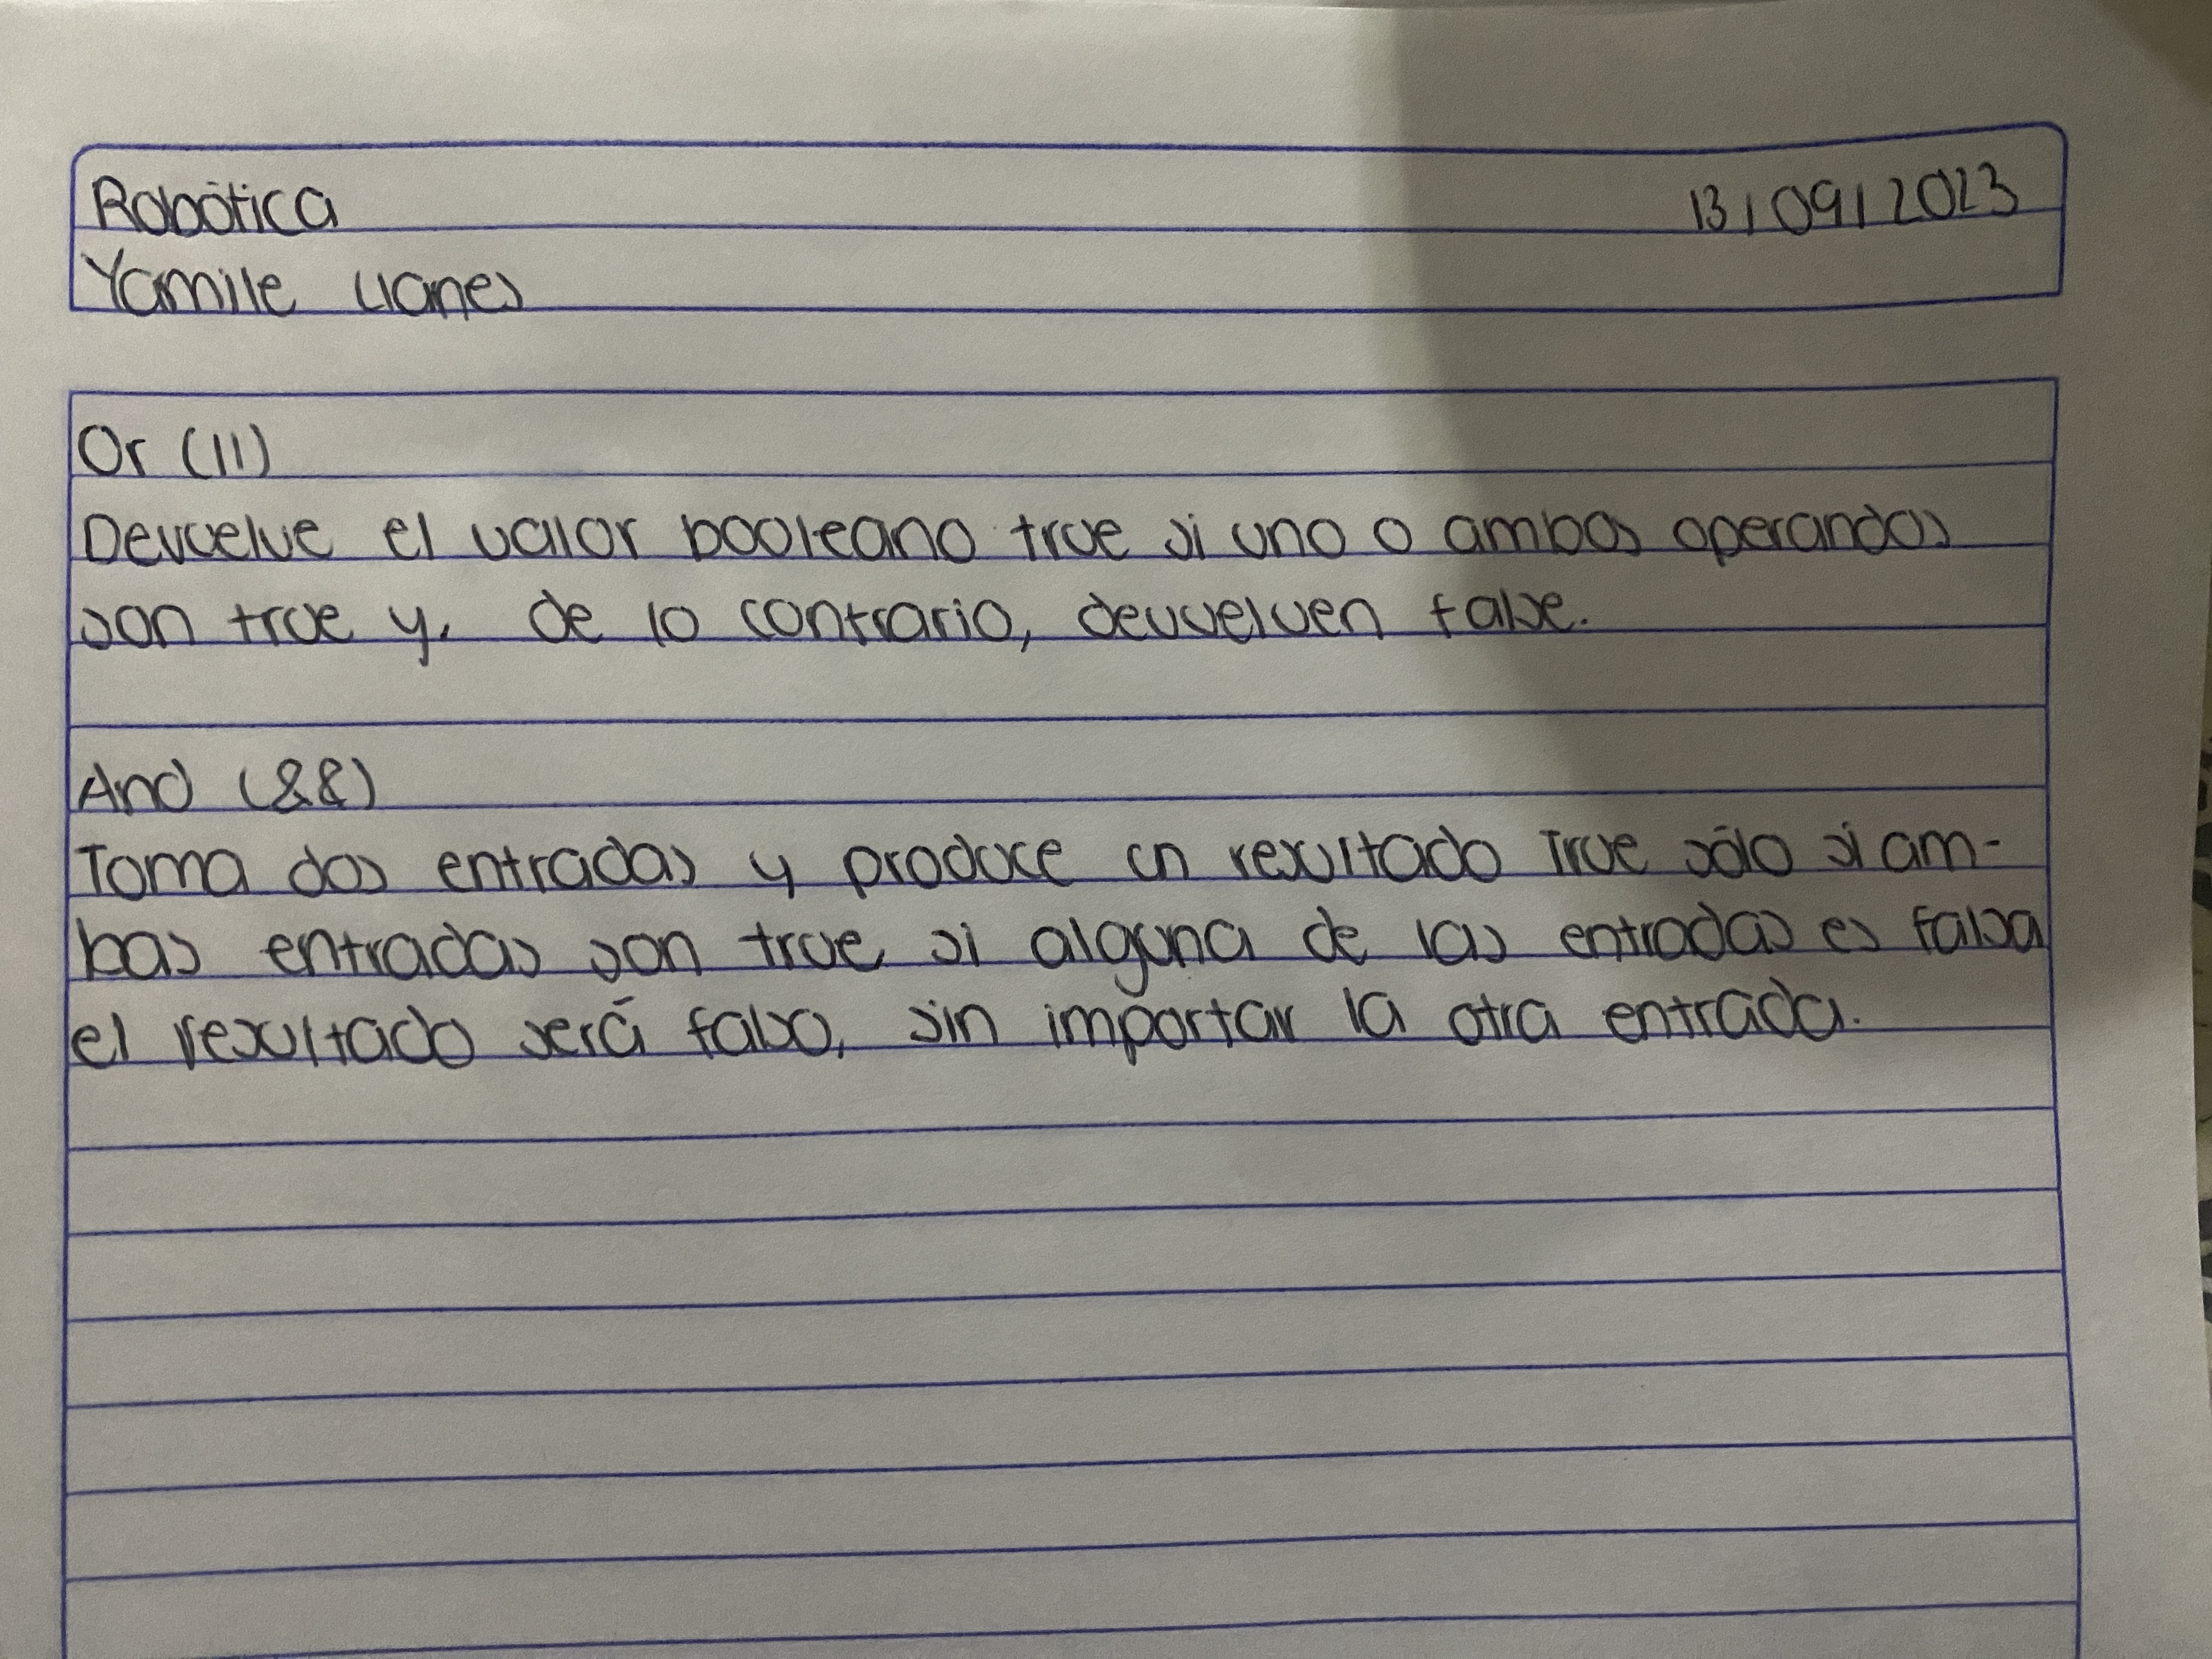 Robótica 13/09/2023
Yamile Llanes
Or (||)
Devuelve el valor booleano true si uno o ambos operandos
son true y, de lo contrario, devuelven false.
And (&&)
Toma dos entradas y produce un resultado True sólo si am-
bas entradas son true si alguna de las entradas es falsa
el resultado será falso, sin importar la otra entrada.